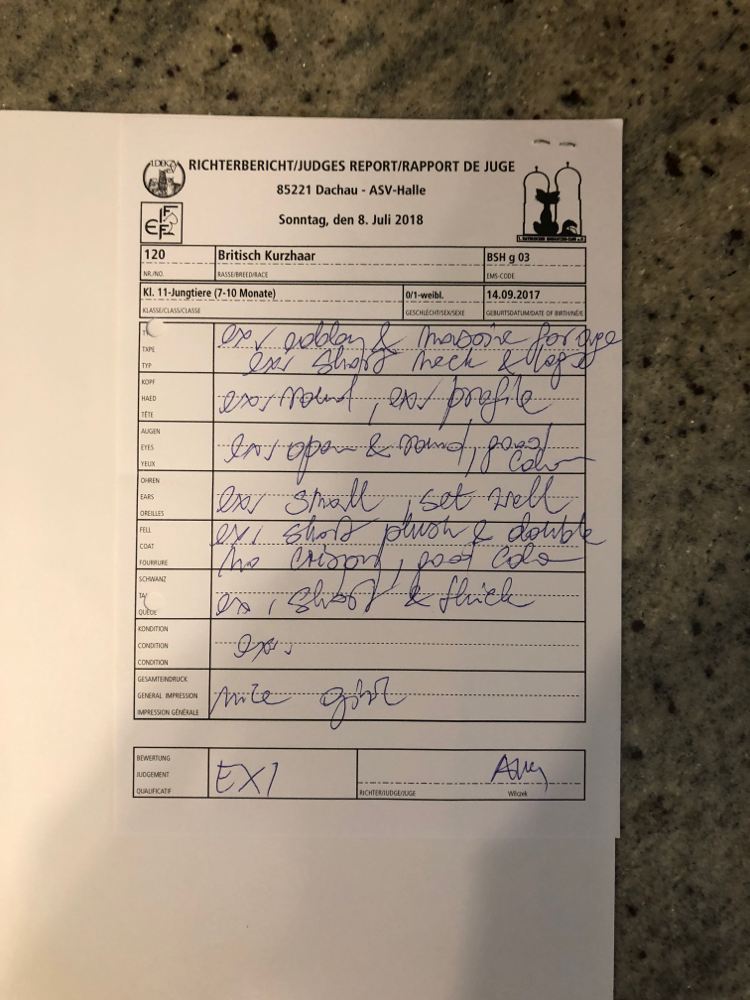 RICHTERBERICHT/JUDGES REPORT/RAPPORT DE JUGE
85221 Dachau - ASV-Halle
Sonntag, den 8. Juli 2018
120
Britisch Kurzhaar
BSH g 03
NR./NO.
RASSE/BREED/RACE
EMS-CODE
Kl. 11-Jungtiere (7-10 Monate)
0/1-weibl.
14.09.2017
KLASSE/CLASS/CLASSE
GESCHLECHT/SEX/SEXE
GEBURTSDATUM/DATE OF BIRTH/NÉ/E
TXPE
TYP
ex, & massive for age
ex, short neck & legs
KOPF
HAED
TÊTE
ex, round, ex, profile
AUGEN
EYES
YEUX
ex, open & round, good
color
OHREN
EARS
OREILLES
ex small, set well
FELL
COAT
FOURRURE
ex, short plush & double
good color
SCHWANZ
QUEUE
ex, short & thick
KONDITION
CONDITION
CONDITION
ex,
GESAMTEINDRUCK
GENERAL IMPRESSION
IMPRESSION GÉNÉRALE
nice girl
BEWERTUNG
JUDGEMENT
QUALIFICATIF
EX1
RICHTER/JUDGE/JUGE
Wilczek